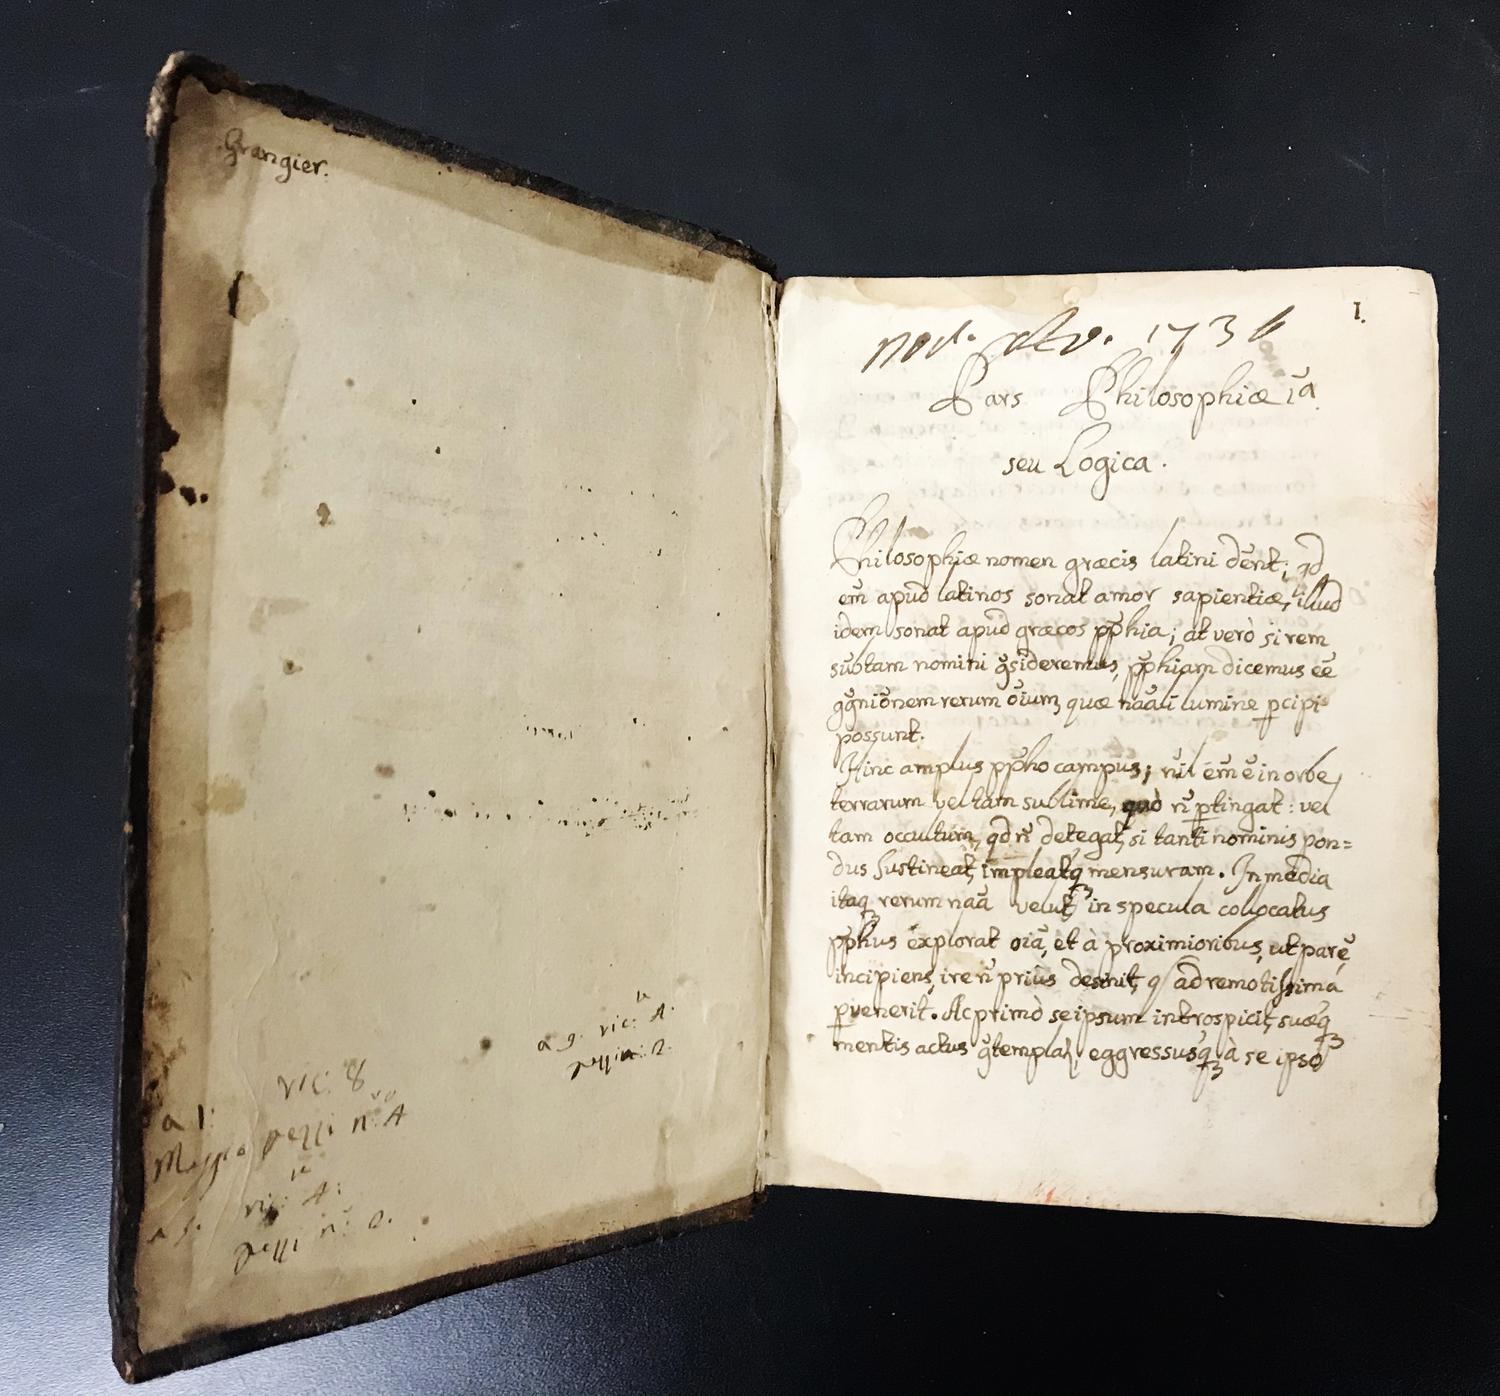 Grangier.
vic. 8
a 1:
pezzi n.
vic: A:
pezzi n: 2.
a 9. vic: A:
pezzi n: 2.
1.
1736
Pars Philosophiæ 1ā
seu Logica.
Philosophiæ nomen græcis latini dēnt; qd
em̄ apud latinos sonat amor sapientiæ, illud
idem sonat apud græcos pp̄hia; at verò si rem
nomini 9̄sideremus, pp̄hiam dicemus ēē
9gniōnem rerum ōium, quæ nāāli lumine pcipi
possunt.
Hinc amplus pp̄ho campus; nīl em̄ ē in orbe
terrarum vel tam sublime, quò n̄ ptingat: vel
tam occultum, qd n̄ detegat, si tanti nominis pon=
dus sustineat, impleatq3 mensuram. In media
itaq3 rerum nāā velut in specula collocatus
pp̄hus explorat oīā, et à proximioribus, ut par ē,
incipiens, ire n̄ prius desinit, q ad remotissima
pvenerit. Ac primò se ipsum introspicit, suæq3
mentis actus 9̄templat, eggressusq3 à se ipso